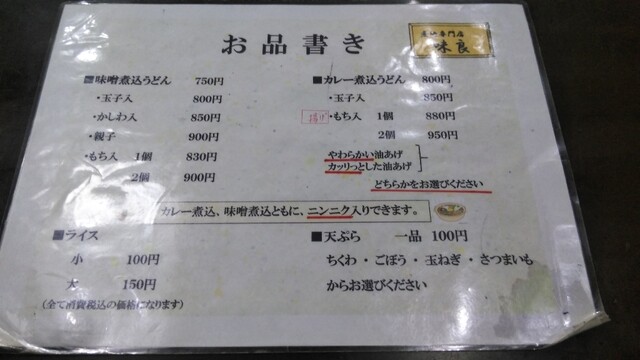 お品書き
専門店
味良
■味噌煮込うどん 750円
・玉子入 800円
・かしわ入 850円
・親子 900円
・もち入 1個 830円
2個 900円
■カレー煮込うどん 800円
・玉子入 850円
揚げ ・もち入 1個 880円
2個 950円
やわらかい油あげ
カッリっとした油あげ
どちらかをお選びください
カレー煮込、味噌煮込ともに、ニンニク入りできます。
■ライス
小 100円
大 150円
(全て消費税込の価格になります)
■天ぷら 一品 100円
ちくわ・ごぼう・玉ねぎ・さつまいも
からお選びください